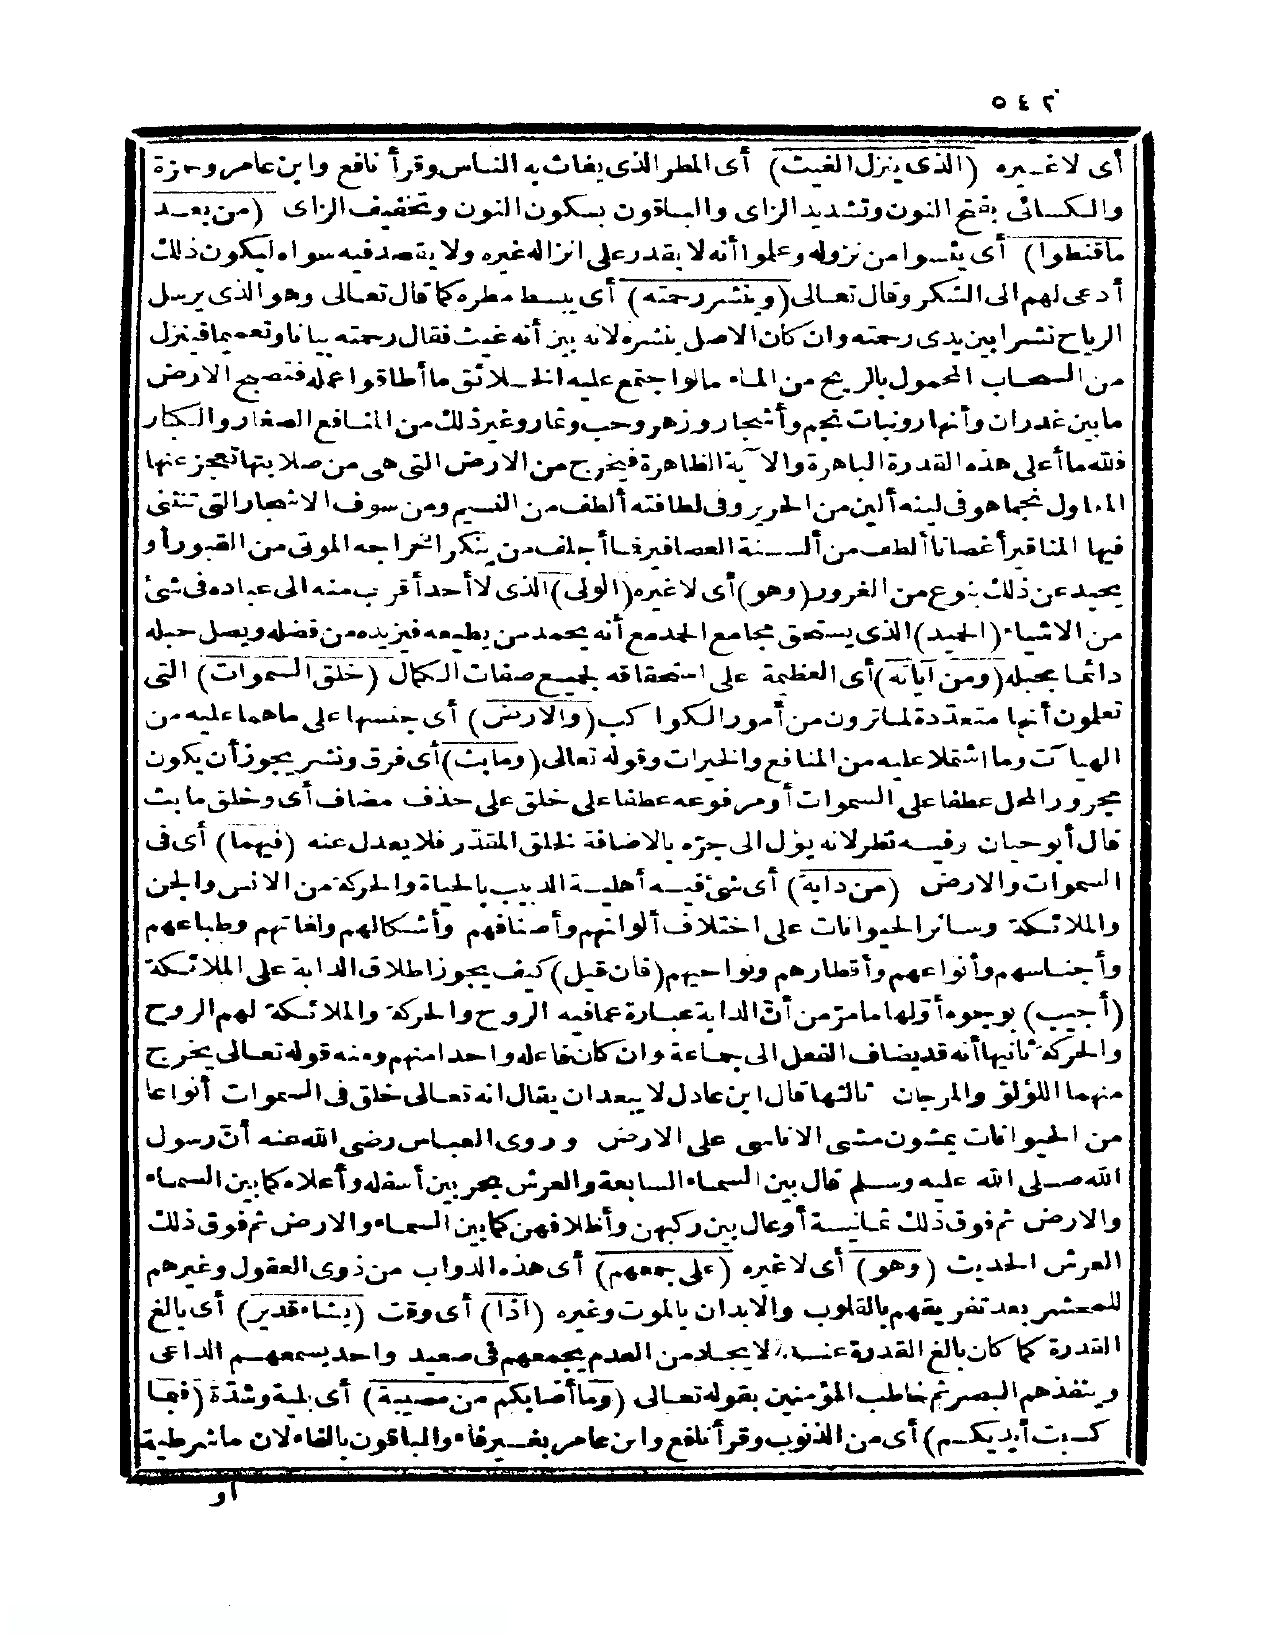 ٥٤٢
أى لا غيره (الذى ينزل الغيث) أى المطر الذى يغاث به الناس وقرأ نافع وابن عامر وحمزة
والكسائى بفتح النون وتشديد الزاى والباقون بسكون النون وتخفيف الزاى (من بعد
ماقنطوا) أى يئسوا من نزوله وعلموا أنه لا يقدر على انزاله غيره ولا يقصد فيه سواه ليكون ذلك
أدعى لهم الى الشكر وقال تعالى (وينشر رحمته) أى يبسط مطره كما قال تعالى وهو الذى يرسل
الرياح نشرا بين يدى رحمته وان كان الاصل ينشره لانه بين أنه غيث فقال رحمته بيانا وتعميما فينزل
من السحاب المحمول بالريح من الماء مالو اجتمع عليه الخلائق ما أطاقوا حمله فتصبح الارض
ما بين غدران وأنهار ونبات نجم وأشجار وزهر وحب وثمار وغير ذلك من المنافع الصغار والكبار
فلله ما أعلى هذه القدرة الباهرة والآية الظاهرة فيخرج من الارض التى هى من صلابتها تعجز عنها
المعاول نجما هو فى لينه ألين من الحرير وفى لطافته ألطف من النسيم ومن سوق الاشجار التى تنثنى
فيها المناقير أغصانا ألطف من ألسنة العصافير فما أجلف من ينكر اخراجه الموتى من القبور أو
يحيد عن ذلك بنوع من الغرور (وهو) أى لا غيره (الولى) الذى لا أحد أقرب منه الى عباده فى شئ
من الاشياء (الحميد) الذى يستحق مجامع الحمد مع أنه يحمد من يطيعه فيزيده من فضله ويصل حبله
دائما بحبله (ومن آياته) أى العظيمة على استحقاقه لجميع صفات الكمال (خلق السموات) التى
تعلمون أنها متعددة لما ترون من أمور الكواكب (والارض) أى جنسها على ما هما عليه من
الهيآت وما اشتملا عليه من المنافع والخيرات وقوله تعالى (ومابث) أى فرق ونشر يجوز أن يكون
مجرور المحل عطفا على السموات أو مرفوعه عطفا على خلق على حذف مضاف أى وخلق ما بث
قال أبو حيان وفيه نظر لانه يؤل الى جرّه بالاضافة لخلق المقدّر فلا يعدل عنه (فيهما) أى فى
السموات والارض (من دابة) أى شئ فيه أهلية الدبيب بالحياة والحركة من الانس والجن
والملائكة وسائر الحيوانات على اختلاف ألوانهم وأصنافهم وأشكالهم ولغاتهم وطباعهم
وأجناسهم وأنواعهم وأقطارهم ونواحيهم (فان قيل) كيف يجوز اطلاق الدابة على الملائكة
(أجيب) بوجوه أوّلها ما مرّ من أنّ الدابة عبارة عما فيه الروح والحركة والملائكة لهم الروح
والحركة ثانيها أنه قد يضاف الفعل الى جماعة وان كان فاعله واحدا منهم ومنه قوله تعالى يخرج
منهما اللؤلؤ والمرجان ثالثها قال ابن عادل لا يبعد ان يقال انه تعالى خلق فى السموات أنواعا
من الحيوانات يمشون مشى الاناسى على الارض وروى العباس رضى الله عنه أنّ رسول
الله صلى الله عليه وسلم قال بين السماء السابعة والعرش بحر بين أسفله وأعلاه كما بين السماء
والارض ثم فوق ذلك ثمانية أوعال بين ركبهن وأظلافهن كما بين السماء والارض ثم فوق ذلك
العرش الحديث (وهو) أى لا غيره (على جمعهم) أى هذه الدواب من ذوى العقول وغيرهم
للمحشر بعد تفريقهم بالقلوب والابدان بالموت وغيره (اذا) أى وقت (يشاء قدير) أى بالغ
القدرة كما كان بالغ القدرة عند الايجاد من العدم يجمعهم فى صعيد واحد يسمعهم الداعى
وينفذهم البصر ثم خاطب المؤمنين بقوله تعالى (وما أصابكم من مصيبة) أى بلية وشدّة (فبما
كسبت أيديكم) أى من الذنوب وقرأ نافع وابن عامر بغير فاء والباقون بالفاء لان ما شرطية
أو